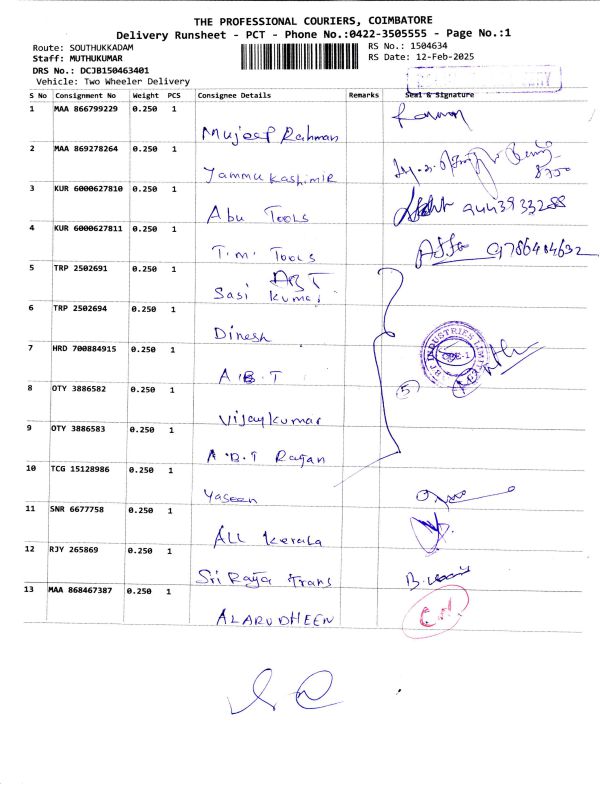 THE PROFESSIONAL COURIERS, COIMBATORE
Delivery Runsheet - PCT - Phone No.:0422-3505555 - Page No.:1
Route: SOUTHUKKADAM RS No.: 1504634
Staff: MUTHUKUMAR RS Date: 12-Feb-2025
DRS No.: DCJB150463401
Vehicle: Two Wheeler Delivery
S No Consignment No Weight PCS Consignee Details Remarks Seal & Signature
1 MAA 866799229 0.250 1
Mujeep Rahman
2 MAA 869278264 0.250 1
Jammu kashimir
3 KUR 6000627810 0.250 1
Abu Tools 9443933288
4 KUR 6000627811 0.250 1
T.M. Tools 9786484632
5 TRP 2502691 0.250 1
ABT
Sasi kumar
6 TRP 2502694 0.250 1
Dinesh
7 HRD 700884915 0.250 1
A.B.T
8 OTY 3886582 0.250 1
Vijaykumar
5
9 OTY 3886583 0.250 1
A.B.T Rajan
10 TCG 15128986 0.250 1
Yaseen
11 SNR 6677758 0.250 1
ALL Kerala
12 RJY 265869 0.250 1
Sri Raja Trans
13 MAA 868467387 0.250 1
ALARUDHEEN